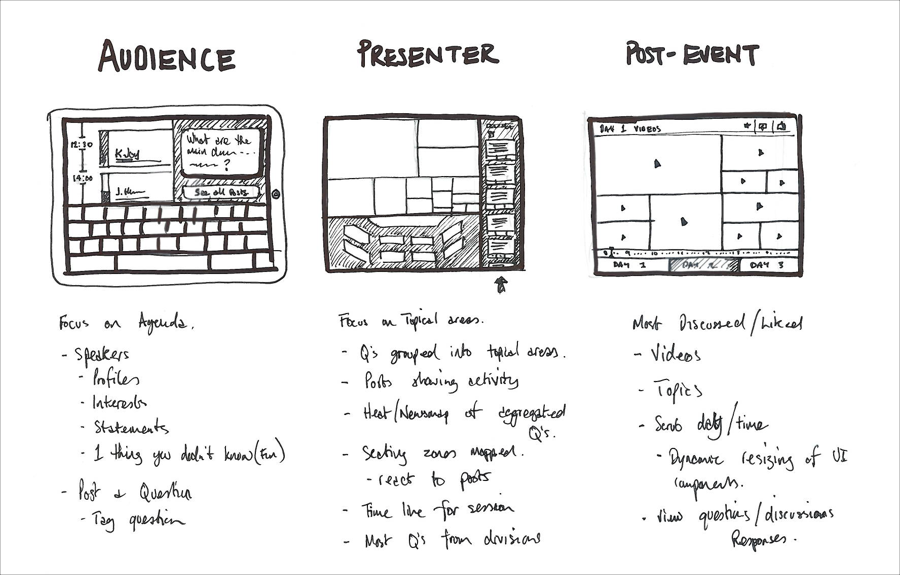 AUDIENCE
12:30
14:00
What are the
main
?
See all Posts
Focus on Agenda.
- Speakers
- Profiles
- Interests
- Statements
- 1 thing you didn't know (Fun)
- Post a Question
- Tag question
PRESENTER
Focus on Topical areas.
- Q's grouped into topical areas.
- Posts showing activity
- Heat/Newsmap of aggregated
Q's.
- Seating zones mapped.
- react to posts
- Time line for session
- Most Q's from divisions
POST-EVENT
DAY 1 VIDEOS
DAY 1
DAY 3
Most Discussed/Liked
- Videos
- Topics
- Scrub day/time
- Dynamic resizing of UI
components.
- View questions/discussions
Responses.